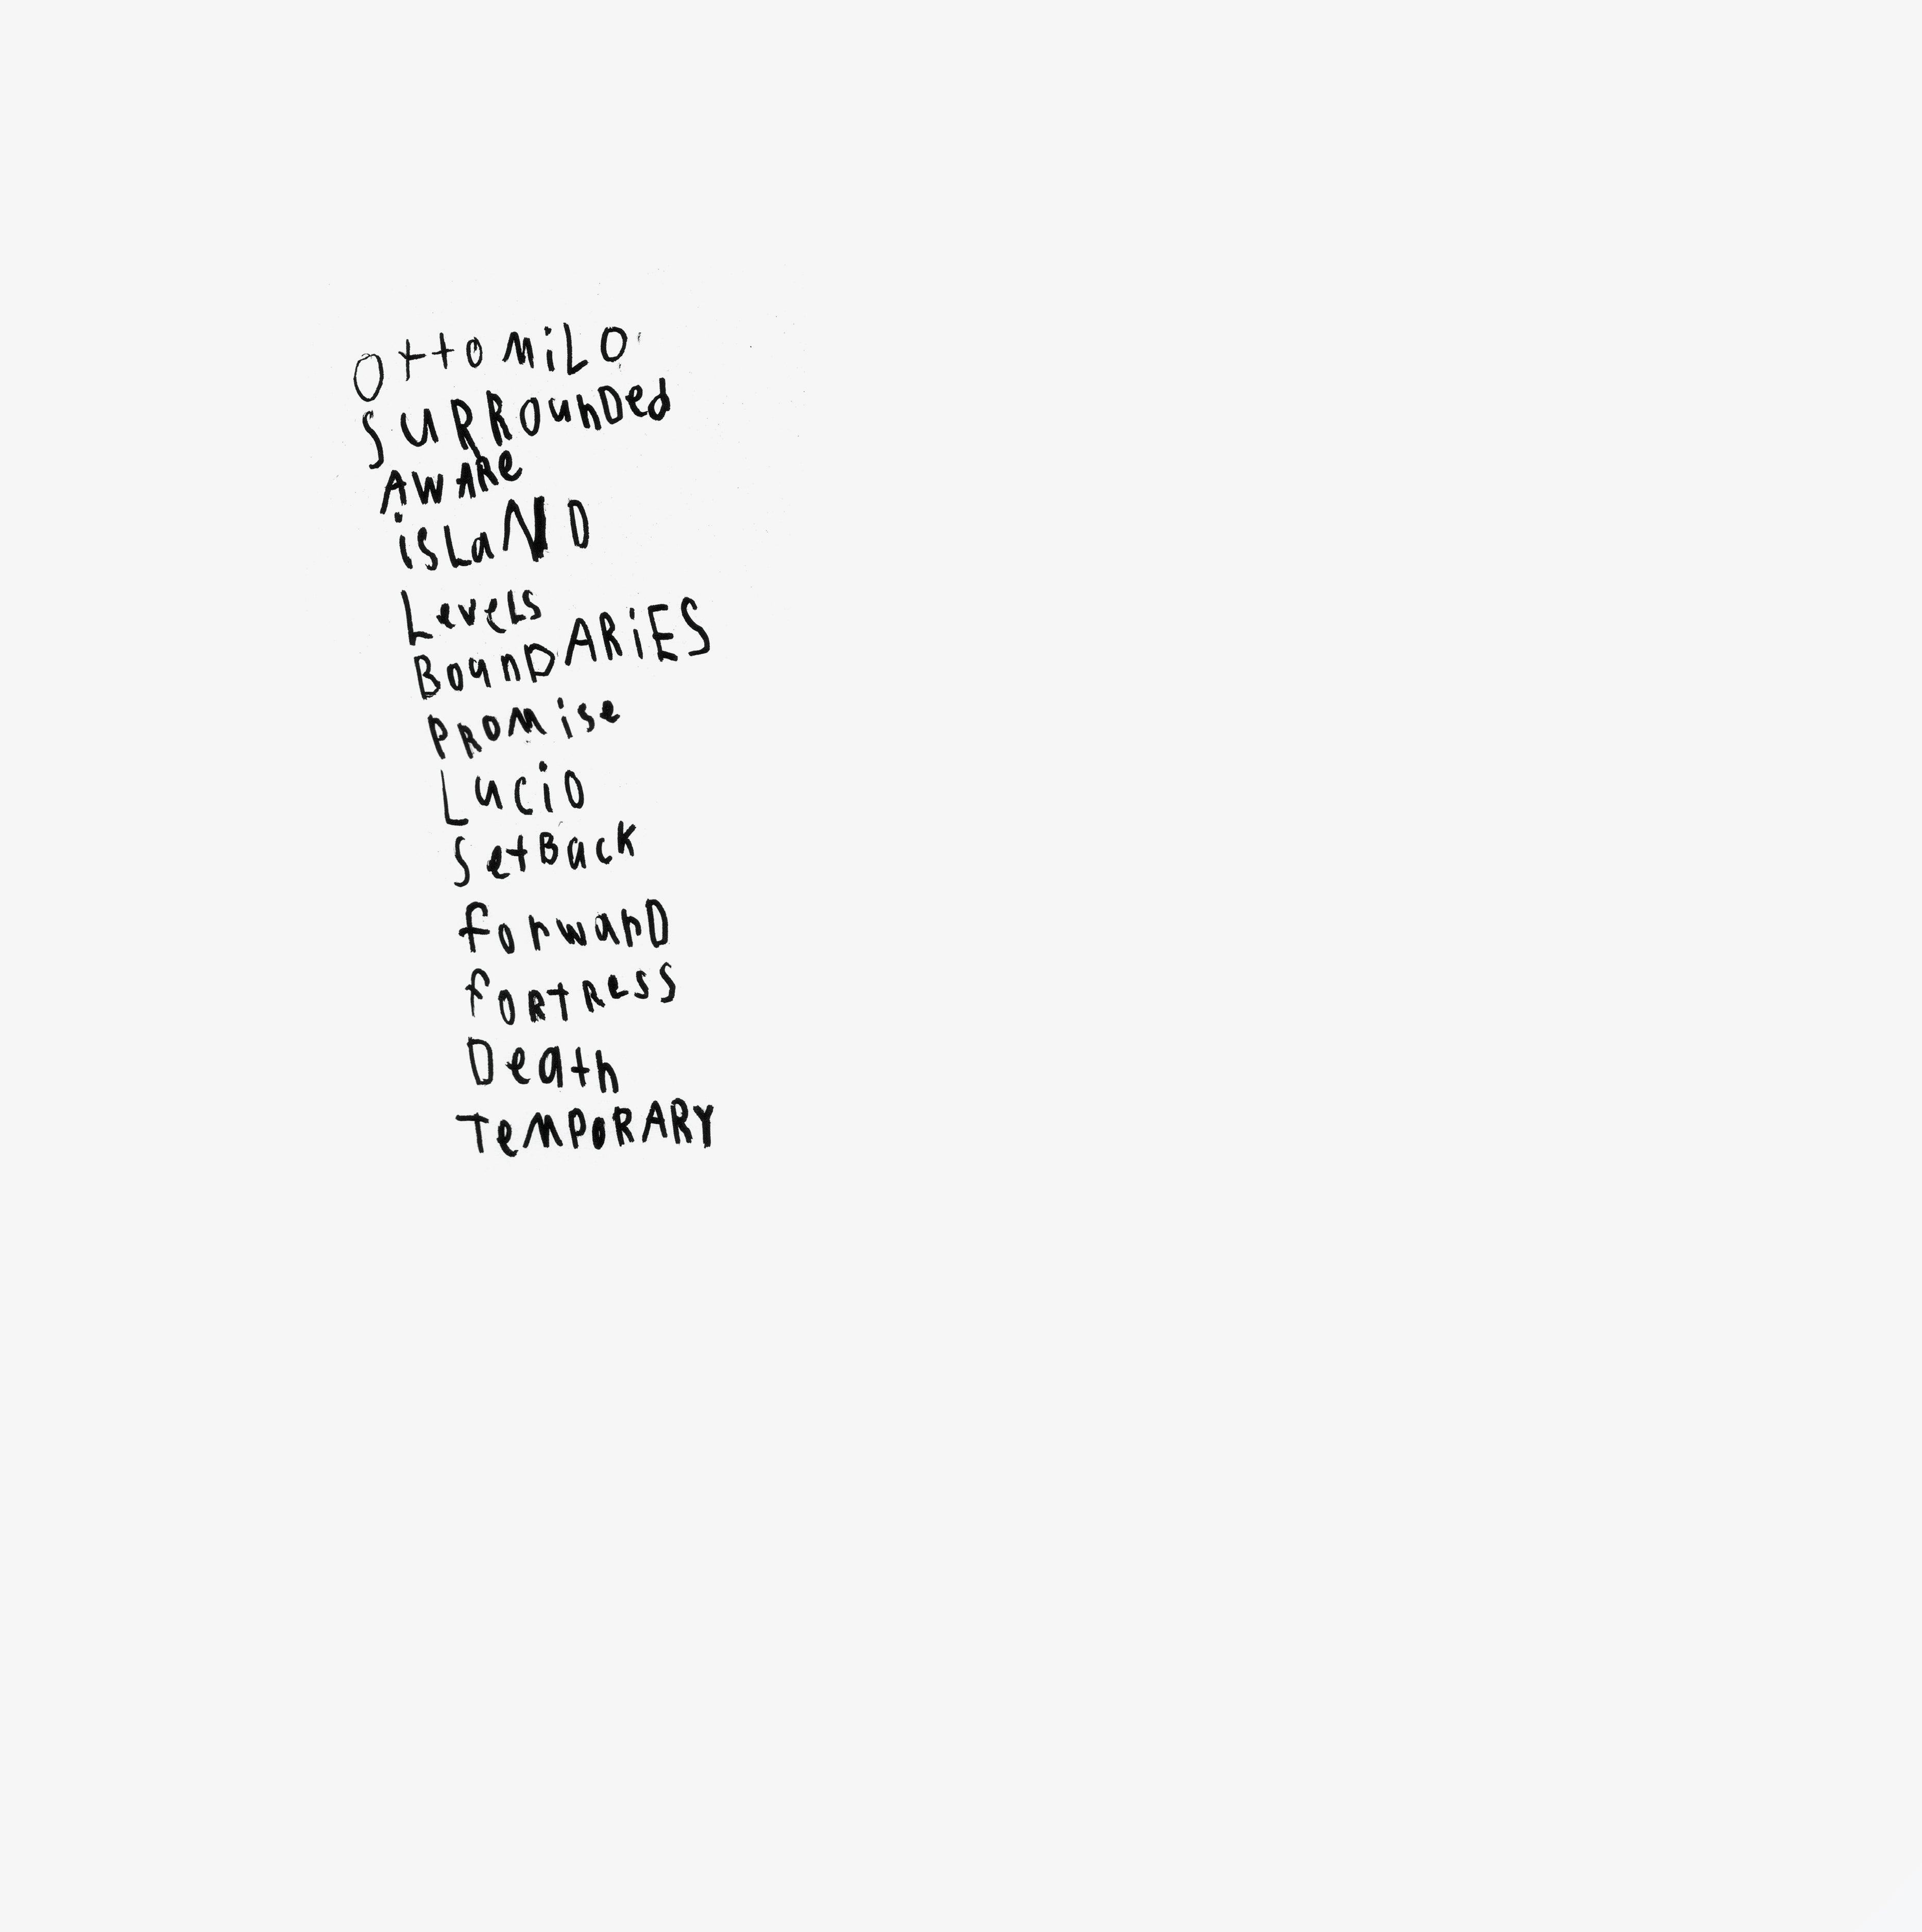 OttoMiLO
SURROunDed
AWARe
isLaND
LeveLS
BounDARiES
PROMise
Lucio
SetBack
forwarD
foRtRess
Death
TeMPORARY